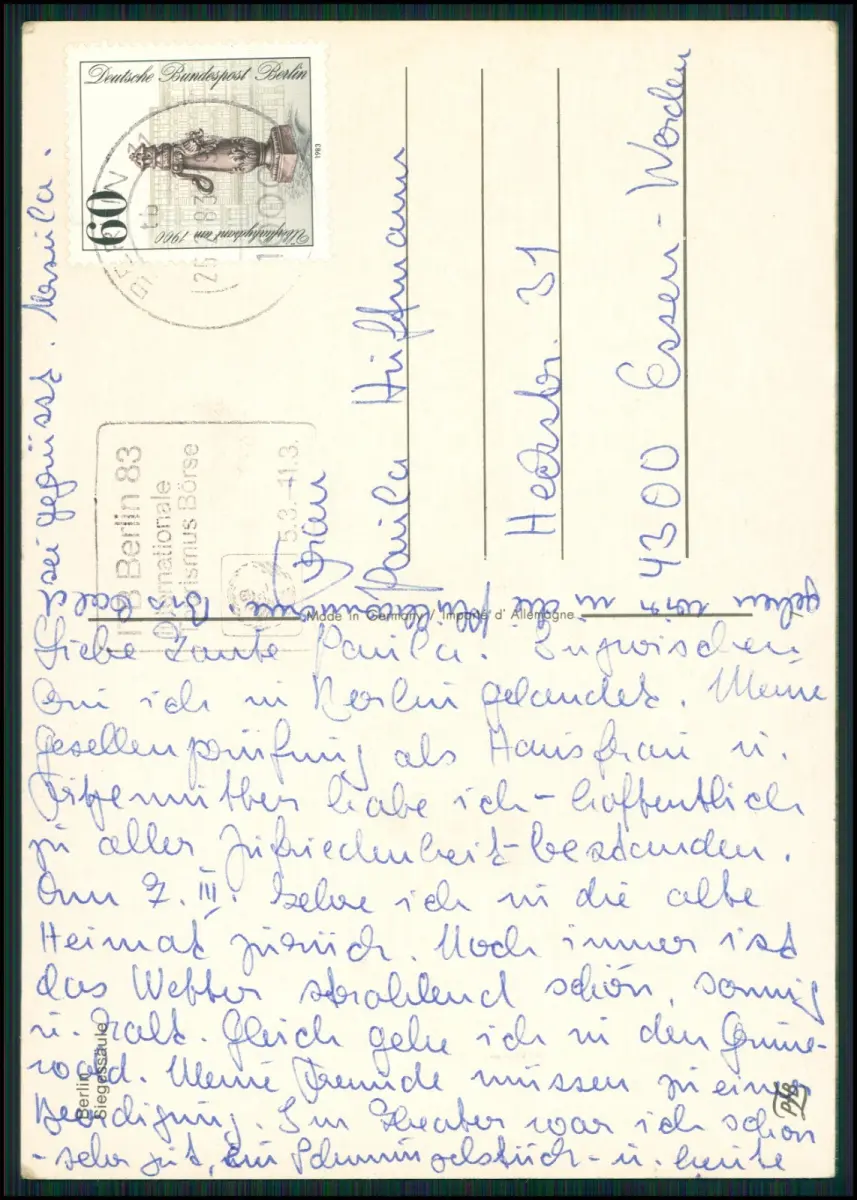 Deutsche Bundespost Berlin
60
Überlaufhydrant um 1900
1983
BERLIN
1000
ITB Berlin 83
Internationale
Tourismus Börse
5.3.-11.3.
Frau
Paula Hüffmann
Heckstr. 31
4300 Essen-Werden
Made in Germany / Importé d'Allemagne
Liebe Tante Paula. Inzwischen
bin ich in Berlin gelandet. Meine
Gesellenprüfung als Hausfrau u.
habe ich - hoffentlich
zu aller Zufriedenheit - bestanden.
Am 7. III. kehre ich in die alte
Heimat zurück. Noch immer ist
das Wetter strahlend schön, sonnig
u. kalt. Gleich gehe ich in den Grune-
wald. Meine Freunde müssen zu einer
Beerdigung. Im Theater war ich schon
- sehr gut, ein Schmunzelstück - u. heute
gehen wir in die Philharmonie. Bis bald
sei gegrüsst. Ursula.
Berlin
Siegessäule